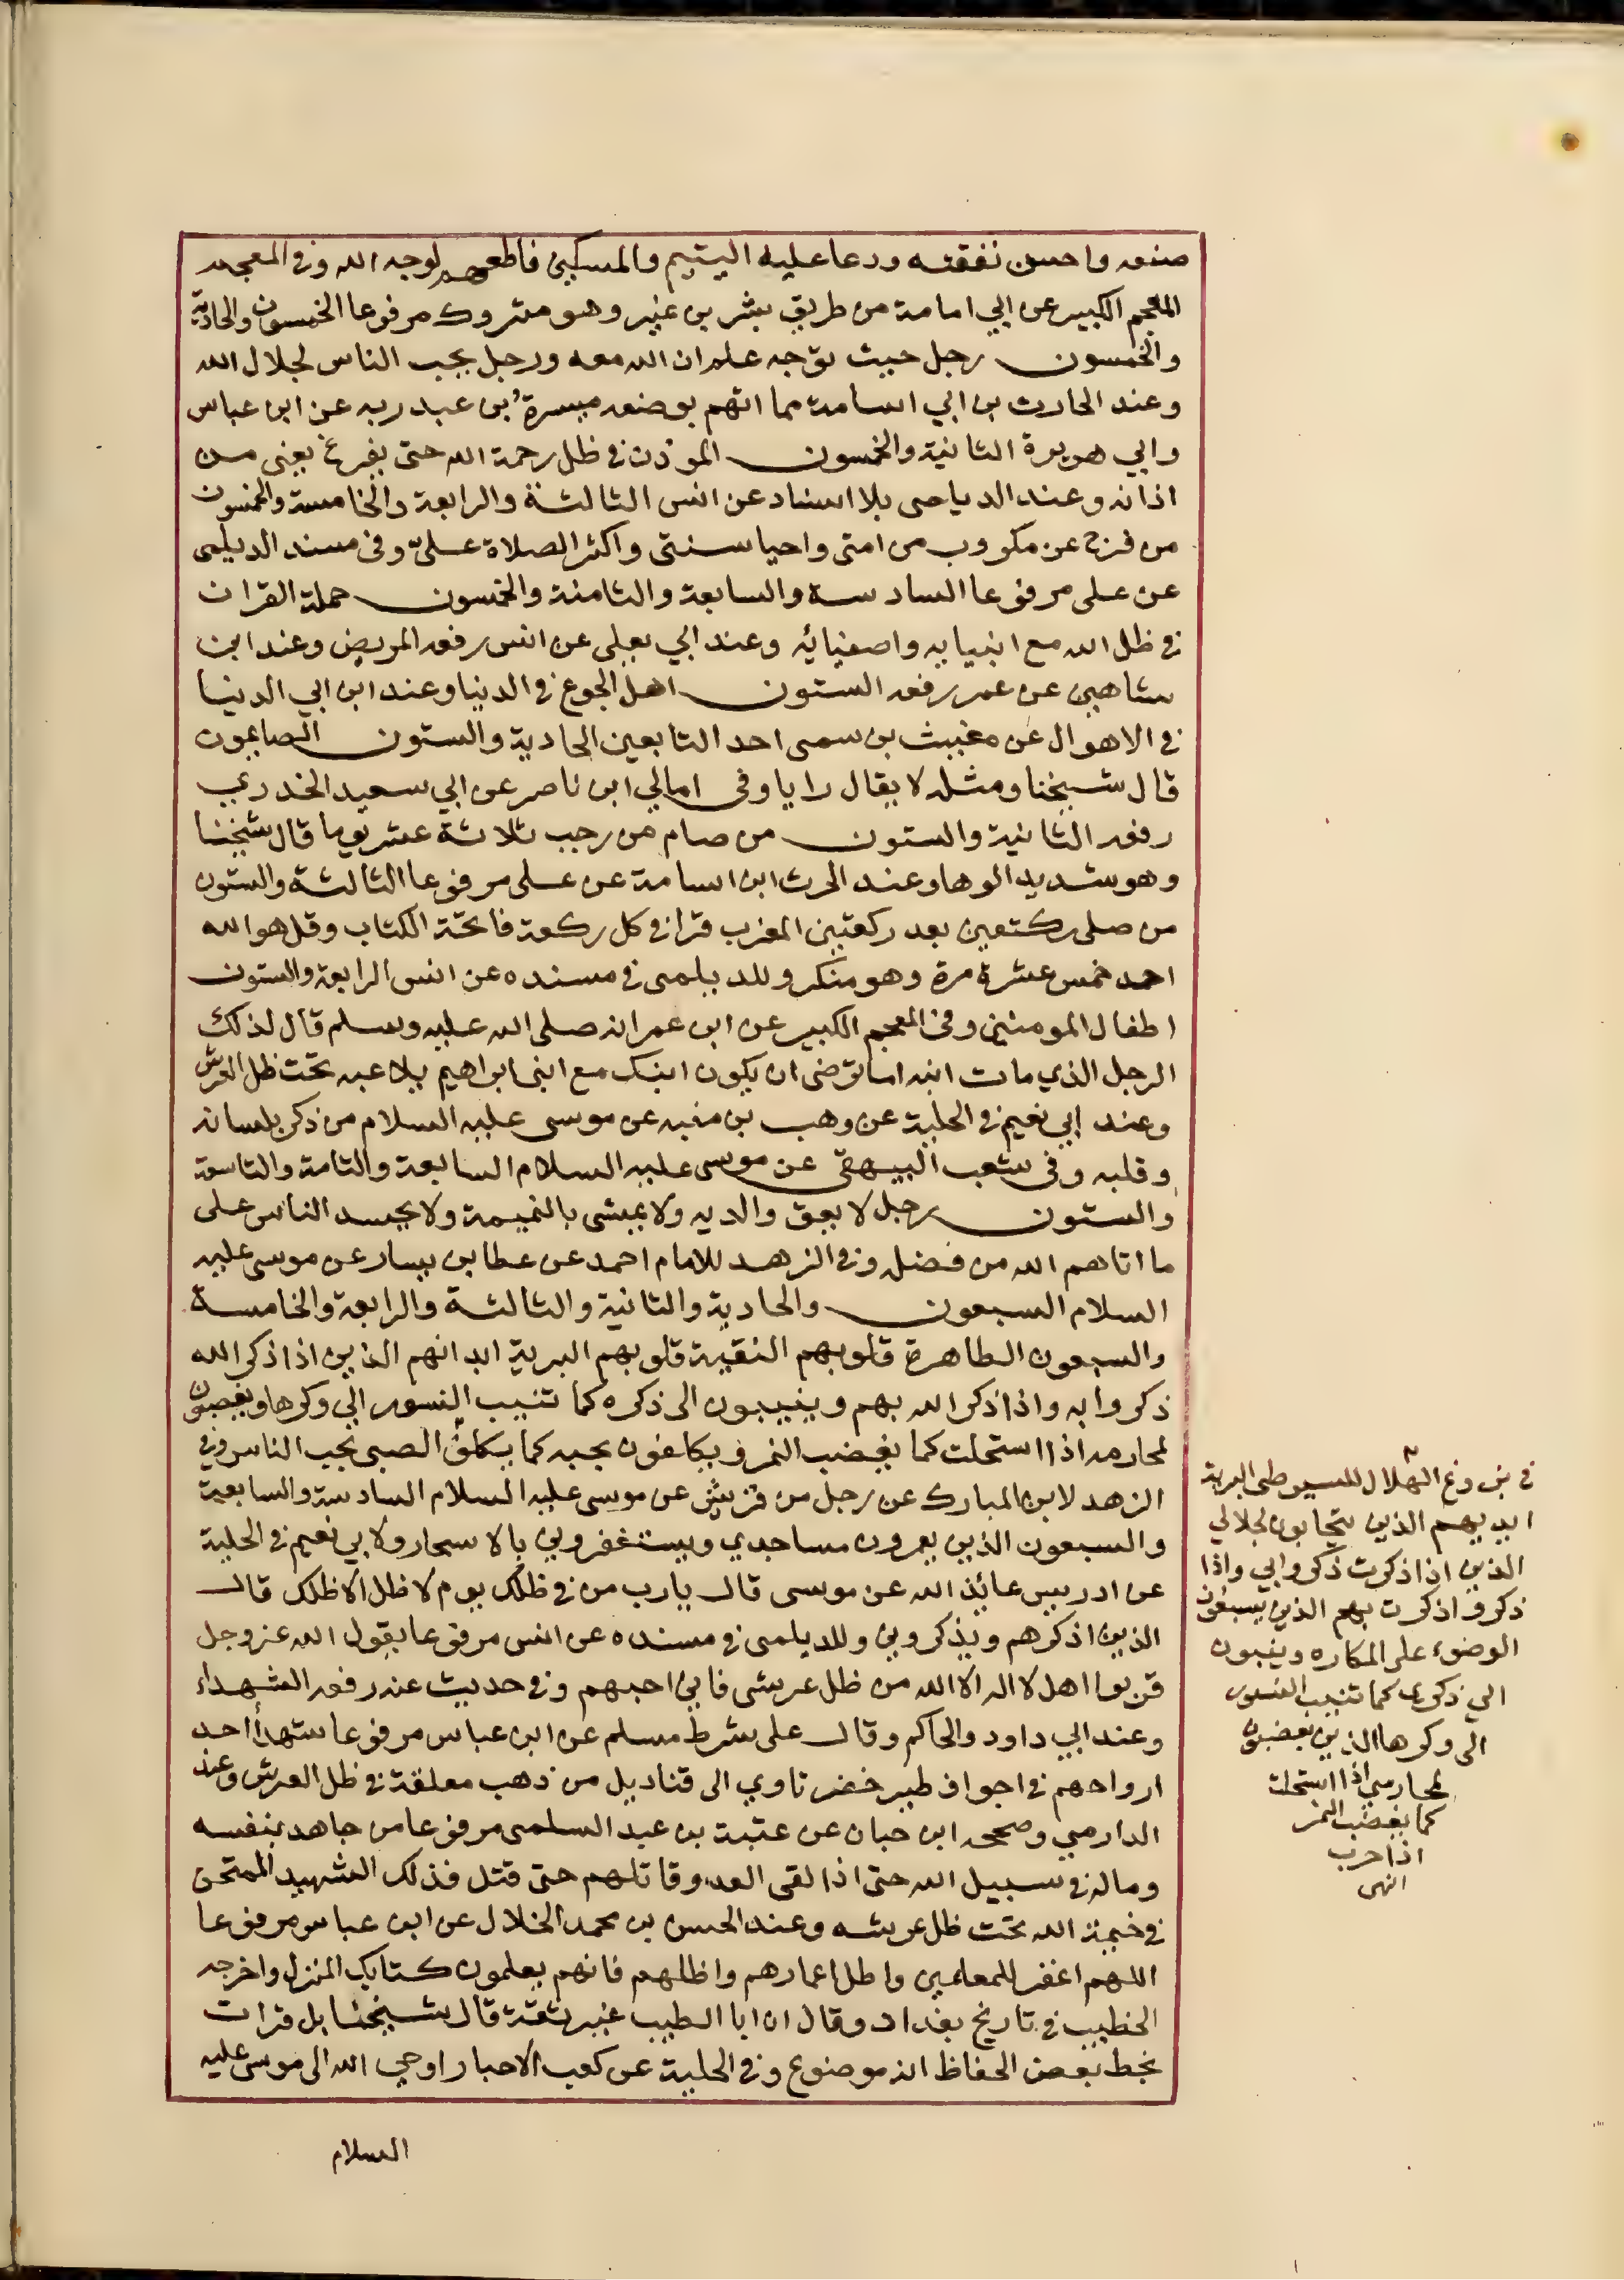 صنعه واحسن نفقته ودعا عليه اليتيم والمسكين فاطعمهم لوجه الله وفي المعجم
المعجم الكبير عن ابي امامة من طريق بشر بن غير وهو متروك مرفوعا الخمسون والحادية
والخمسون رجل حيث توجه علم ان الله معه ورجل يحب الناس لجلال الله
وعند الحارث بن ابي اسامة مما اتهم بوضعه ميسرة بن عبد ربه عن ابن عباس
وابي هريرة الثانية والخمسون الموذن في ظل رحمة الله حتى يفرغ يعني من
اذانه وعند الدياصى بلا اسناد عن انس الثالثة والرابعة والخامسة والخمسون
من فرج عن مكروب من امتى واحيا سنتى واكثر الصلاة علىّ وفى مسند الديلمى
عن على مرفوعا السادسة والسابعة والثامنة والخمسون حملة القران
في ظل الله مع انبيايه واصفيائه وعند ابي يعلى عن انس رفعه المريض وعند ابن
شاهين عن عمر رفعه الستون اهل الجوع في الدنيا وعند ابن ابي الدنيا
في الاهوال عن مغيث بن سمى احد التابعين الحادية والستون الصايمون
قال شيخنا ومثله لا يقال رايا وفى امالي ابن ناصر عن ابي سعيد الخدري
رفعه الثانية والستون من صام من رجب ثلاثة عشر يوما قال شيخنا
وهو شديد الوها وعند الحرث ابن اسامة عن على مرفوعا الثالثة والستون
من صلى ركتعين بعد ركعتين المغرب قرا في كل ركعة فاتحة الكتاب وقل هو الله
احمد خمس عشرة مرة وهو منكر وللديلمى في مسنده عن انس الرابعة والستون
اطفال المومنين وفى المعجم الكبير عن ابن عمر انه صلى الله عليه وسلم قال لذلك
الرجل الذي مات ابنه اما ترضى ان يكون ابنك مع ابنى ابراهيم يلاعبه تحت ظل العرش
وعند ابي نعيم في الحلية عن وهب بن منبه عن موسى عليه السلام من ذكر بلسانه
وقلبه وفى شعب البيهقى عن موسى عليه السلام السابعة والثامة والتاسعة
والستون رجل لا يعق والديه ولا يمشى بالنميمة ولا يحسد الناس على
ما اتاهم الله من فضله وفي الزهد للامام احمد عن عطا بن يسار عن موسى عليه
السلام السبعون والحادية والثانية والثالثة والرابعة والخامسة
والسبعون الطاهرة قلوبهم النقية قلوبهم البرية ابدانهم الذين اذا ذكر الله
ذكروا به واذا ذكر الله بهم وينيبون الى ذكره كما تنيب النسور الي وكرها ويغضبون
لمحارمه اذا استحلت كما يغضب النمر ويكلفون بحبه كما يكلف الصبى بحب الناس وفي
الزهد لابن المبارك عن رجل من قريش عن موسى عليه السلام السادسة والسابعة
والسبعون الذين يعمرون مساجدي ويستغفروني بالاسحار ولابي نعيم في الحلية
عن ادريس عائذ الله عن موسى قال يارب من في ظلك يوم لا ظل الا ظلك قال
الذين اذكرهم ويذكروني وللديلمى في مسنده عن انس مرفوعا يقول الله عز وجل
قربوا اهل لا اله الا الله من ظل عرشى فاني احبهم وفي حديث عنه رفعه الشهداء
وعند ابي داود والحاكم وقال على شرط مسلم عن ابن عباس مرفوعا شهداأ احد
ارواحهم في اجواف طير خضر تاوي الى قناديل من ذهب معلقة في ظل العرش وعند
الدارمي وصححه ابن حبان عن عتبة بن عبد السلمى مرفوعا من جاهد بنفسه
وماله في سبيل الله حتى اذا لقى العدو قاتلهم حتى قتل فذلك الشهيد الممتحن
في خيمة الله تحت ظل عرشه وعند الحسن بن محمد الخلال عن ابن عباس مرفوعا
اللهم اغفر للمعلمين واطل اعمارهم واظلهم فانهم يعلمون كتابك المنزل واخرجه
الخطيب في تاريخ بغداد وقال ان ابا الطيب غير ثقة قال شيخنا بل قرات
بخط بعض الحفاظ انه موضوع وفي الحلية عن كعب الاحبار اوحي الله الى موسى عليه
السلام
في بزوغ الهلال للسيوطى البرية
ابديهم الذين يتحابون لجلالي
الذين اذا ذكرت ذكروا بي واذا
ذكروا ذكرت بهم الذين يسبغون
الوضوء على المكاره وينيبون
الي ذكرى كما تنيب النسور
الى وكرها الذين يغضبون
لمحارمي اذا استحلت
كما يغضب النمر
اذا حرب
انهى